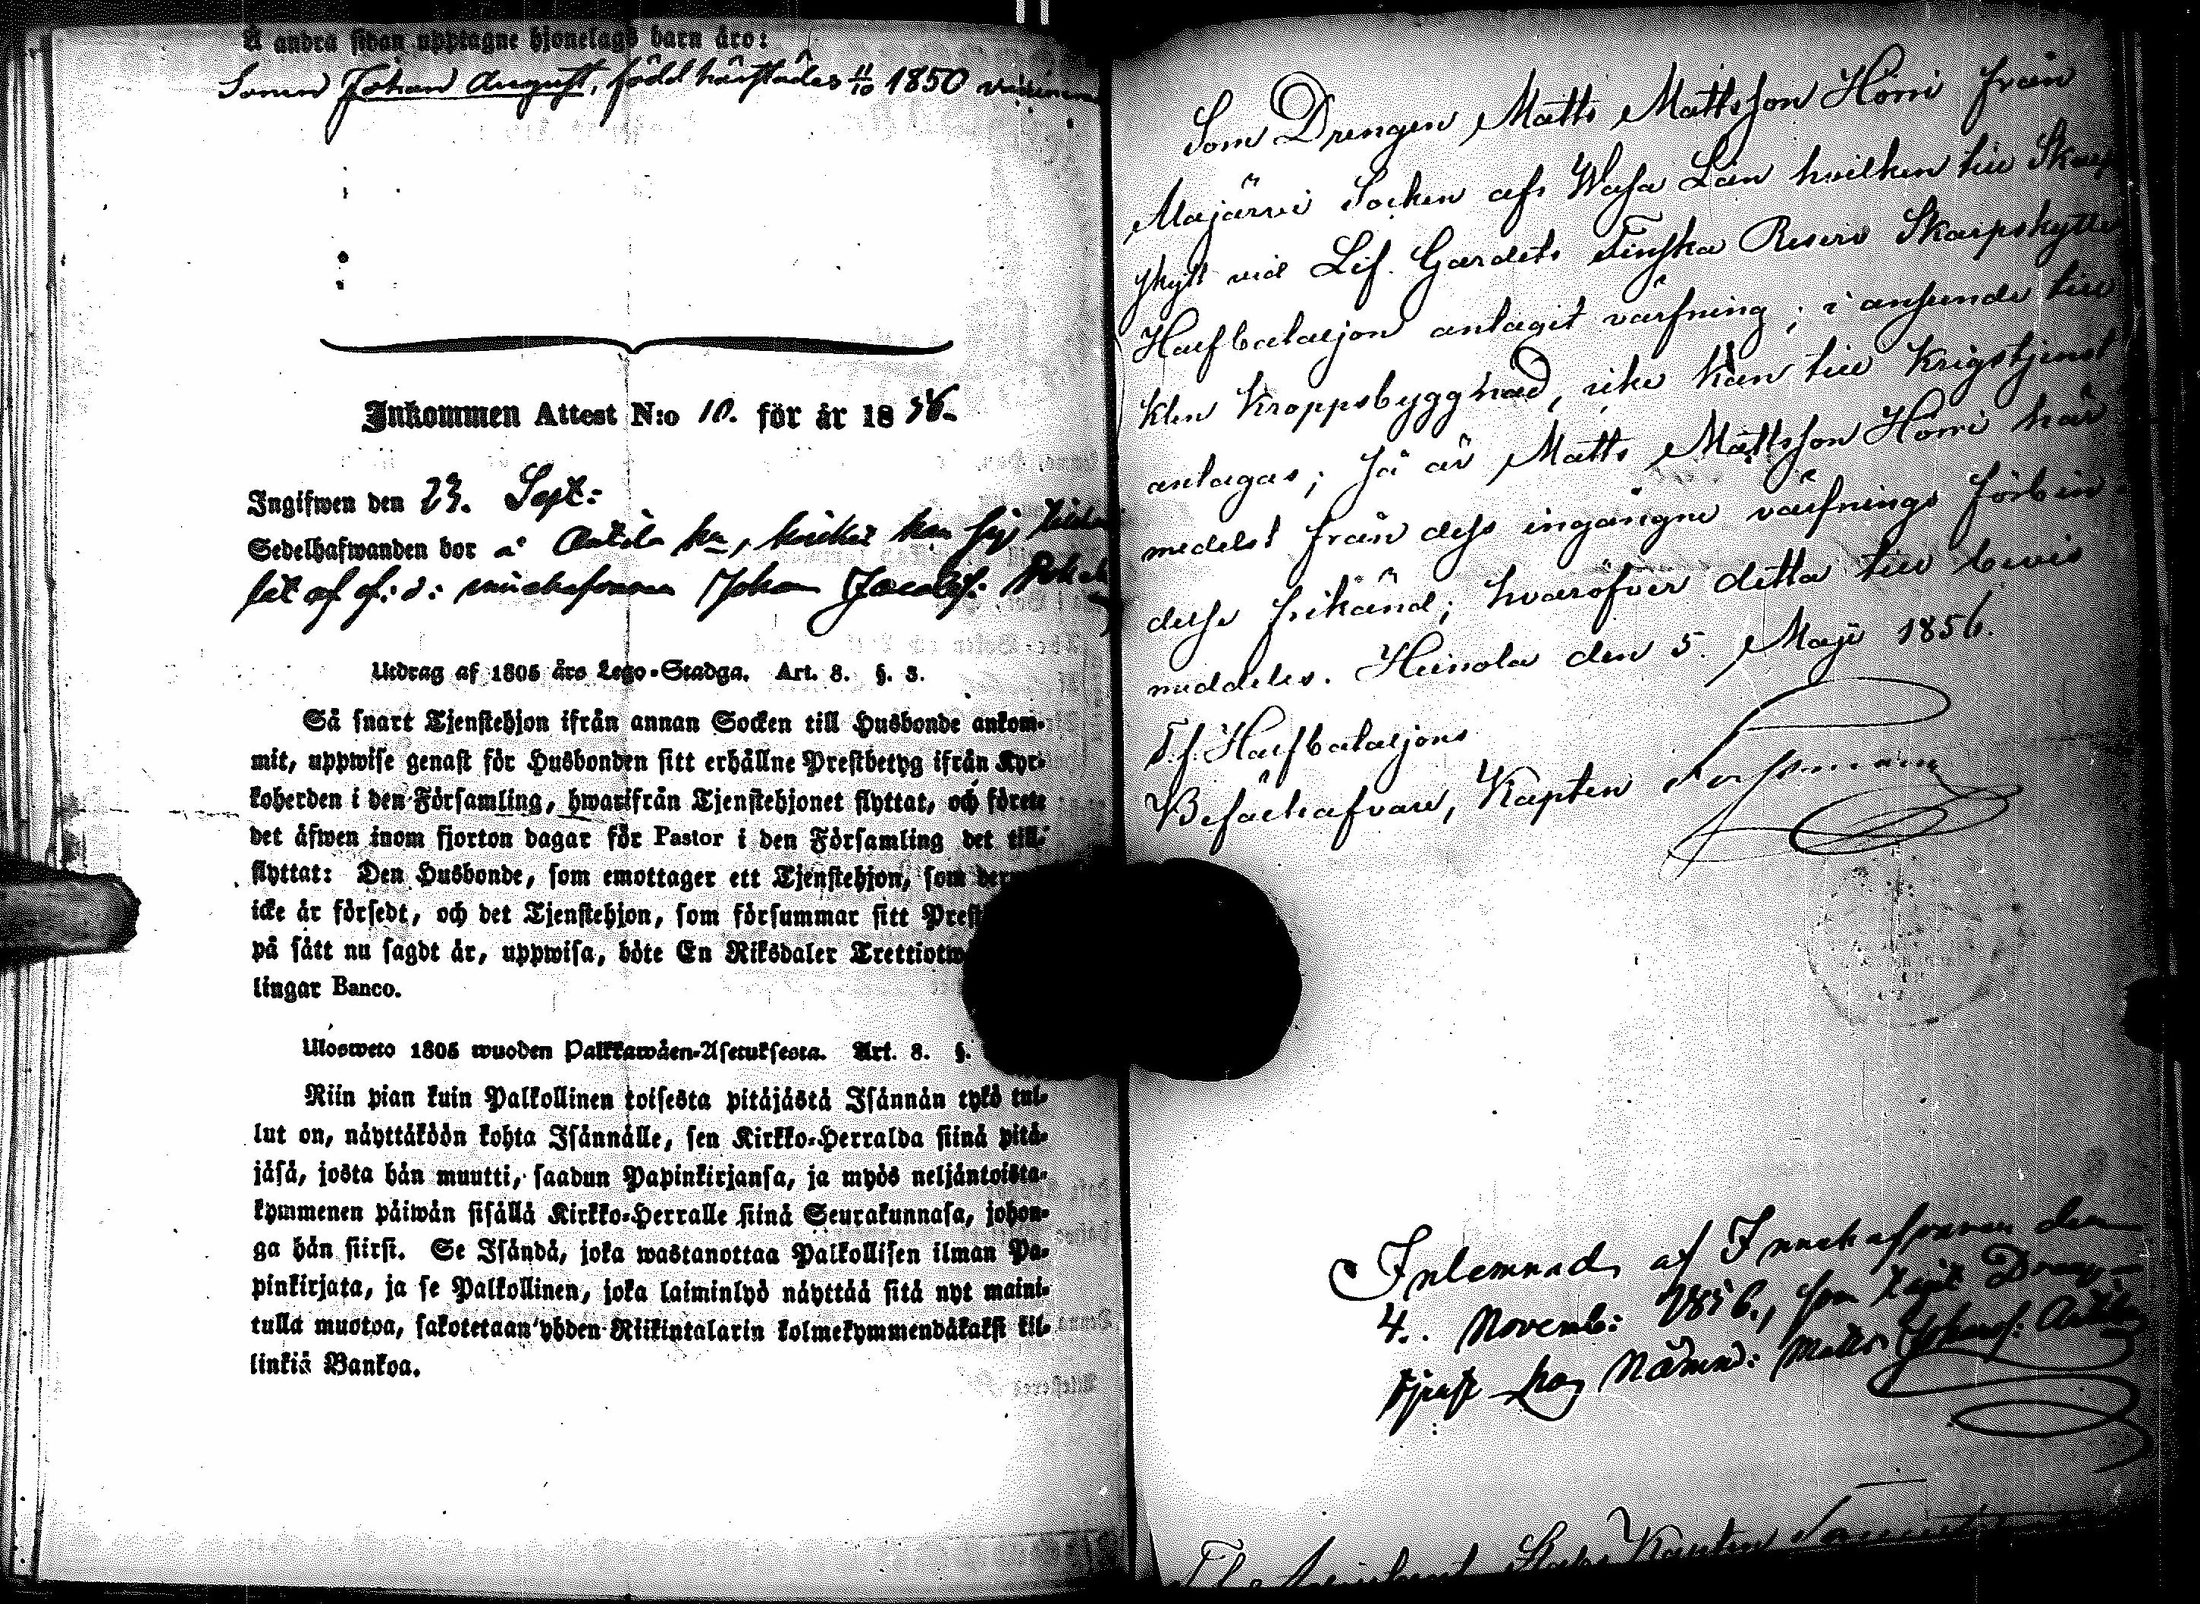 Å andra sidan upptagne hjonelags barn äro:
Sonen Johan August, född härstädes 11/10 1850
Inkommen Attest N:o 10. för år 1856.
Ingifwen den 23. Sept:
Sedelhafwanden bor å Anttila
Johan
Utdrag af 1805 års Lego-Stadga. Art. 8. §. 3.
Så snart Tjenstehjon ifrån annan Socken till Husbonde ankom-
mit, uppwise genast för Husbonden sitt erhållne Prestbetyg ifrån Kyr-
koherden i den Församling, hwarifrån Tjenstehjonet flyttat, och förete
det äfwen inom fjorton dagar för Pastor i den Församling det till-
flyttat: Den Husbonde, som emottager ett Tjenstehjon, som
icke är försedt, och det Tjenstehjon, som försummar sitt
på sätt nu sagdt är, uppwisa, böte En Riksdaler
lingar Banco.
Ulosweto 1805 wuoden Palkkawäen-Asetuksesta. Art. 8. §.
Niin pian kuin Palkollinen toisesta pitäjästä Isännän tykö tul-
lut on, näyttäköön kohta Isännälle, sen Kirkko-Herralda siinä pitä-
jäsä, josta hän muutti, saadun Papinkirjansa, ja myös neljäntoista-
kymmenen päiwän sisällä Kirkko-Herralle siinä Seurakunnasa, johon-
ga hän siirsi. Se Isändä, joka wastanottaa Palkollisen ilman Pa-
pinkirjata, ja se Palkollinen, joka laiminlyö näyttää sitä nyt maini-
tulla muotoa, sakotetaan yhden Riikintalarin kolmekymmendäkaksi kil-
linkiä Bankoa.
Som Drengen Matts Mattsson Horri från
Majärvi Socken af Wasa Län hvilken till Skarp
skytt vid Lif. Gardets Finska Reserv Skarpskytte
Halfbataljon antagit värfning; i anseende till
klen kroppsbyggnad, icke kan till Krigstjenst
antagas; så är Matts Mattsson Horri här
medelst från dess ingångne värfnings förbin-
delse frikänd; hvaröfver detta till bevis
meddeles. Heinola den 5. Maji 1856.
T.f. Halfbataljons
Befälhafvare, Kapten Forssman
Inlemnad af Innehafvaren den
4. Novemb: 1856, som tagit Dreng-
tjenst hos Nämnd: Matts Johansf: Anttila
Kapten